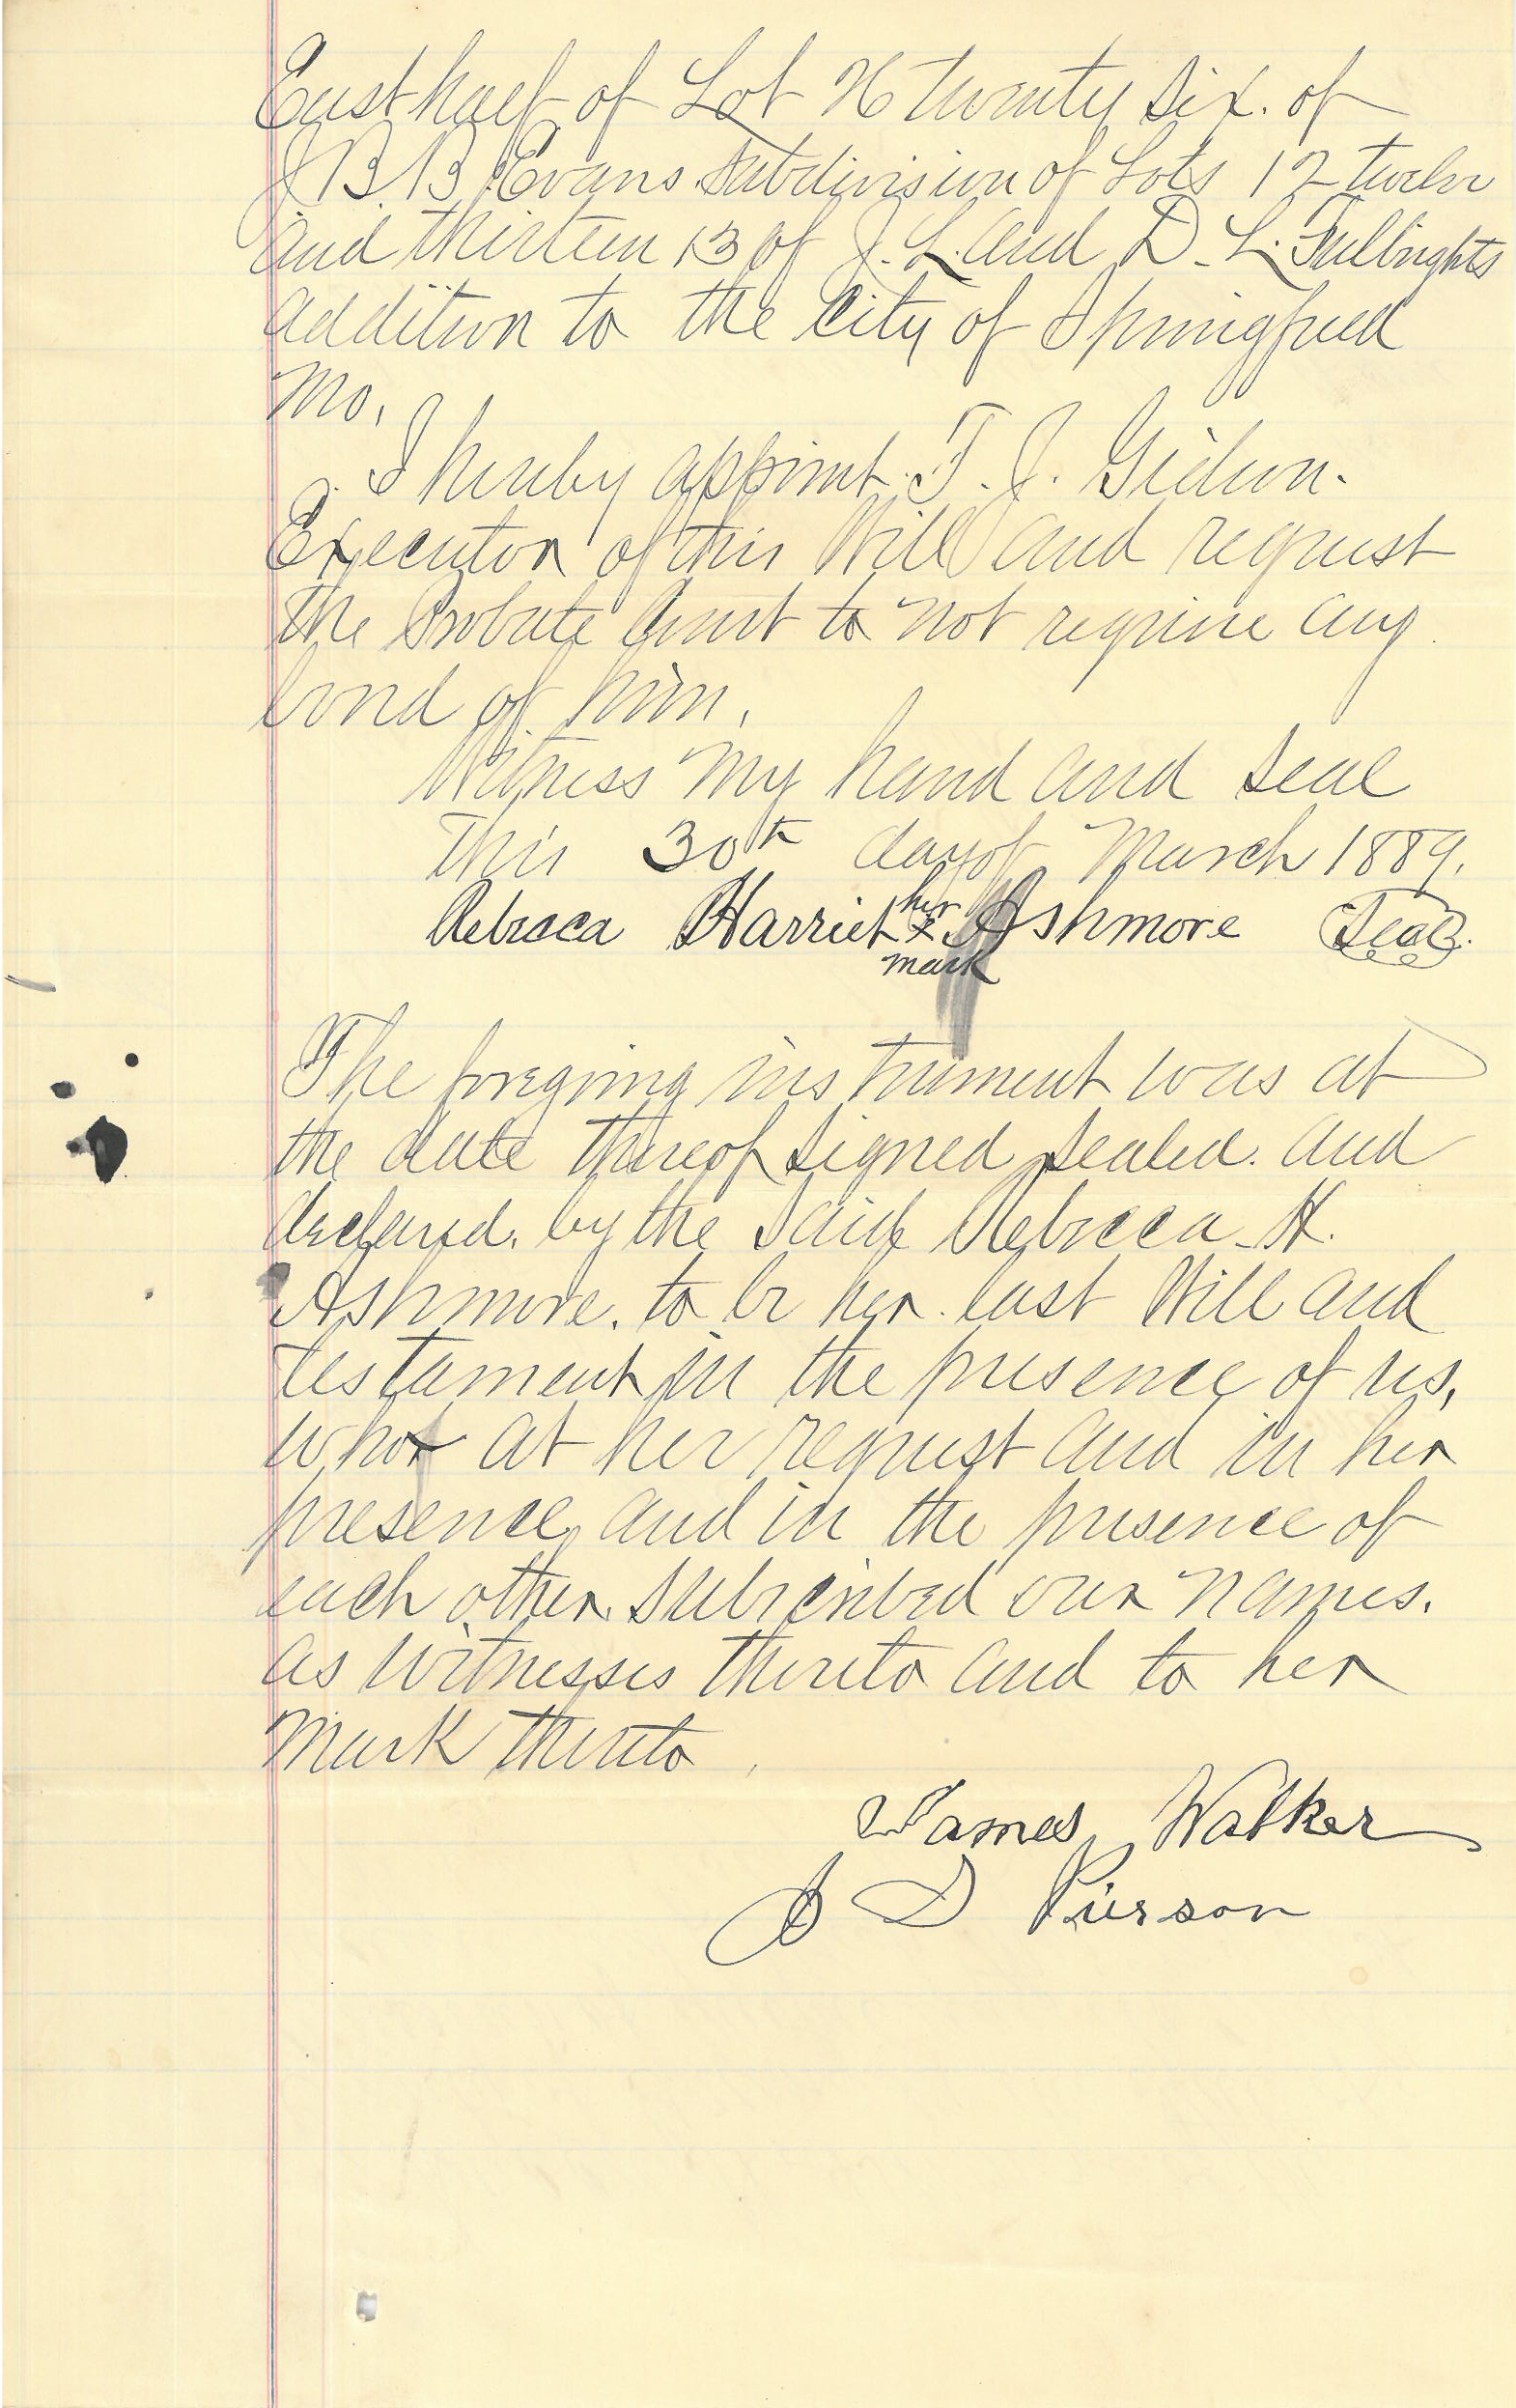 East half of Lot 26 twenty six. of
J B B Evans Subdivision of Lots 12 twelve
and thirteen 13 of J. L. and D. L. Fulbrights
addition to the City of Springfield
Mo.
I hereby appoint T. J. Gideon.
Executor of this Will and request
the Probate Court to not require any
bond of him.
Witness my hand and seal
this 30th day of March 1889.
her
Rebecca Harriet x Ashmore Seal.
mark
The foregoing instrument was at
the date thereof signed sealed. and
declared. by the said Rebecca H.
Ashmore. to be her last Will and
testament in the presence of us,
who at her request and in her
presence, and in the presence of
each other. subscribed our names.
as witnesses thereto and to her
mark thereto.
James Walker
J D Pierson